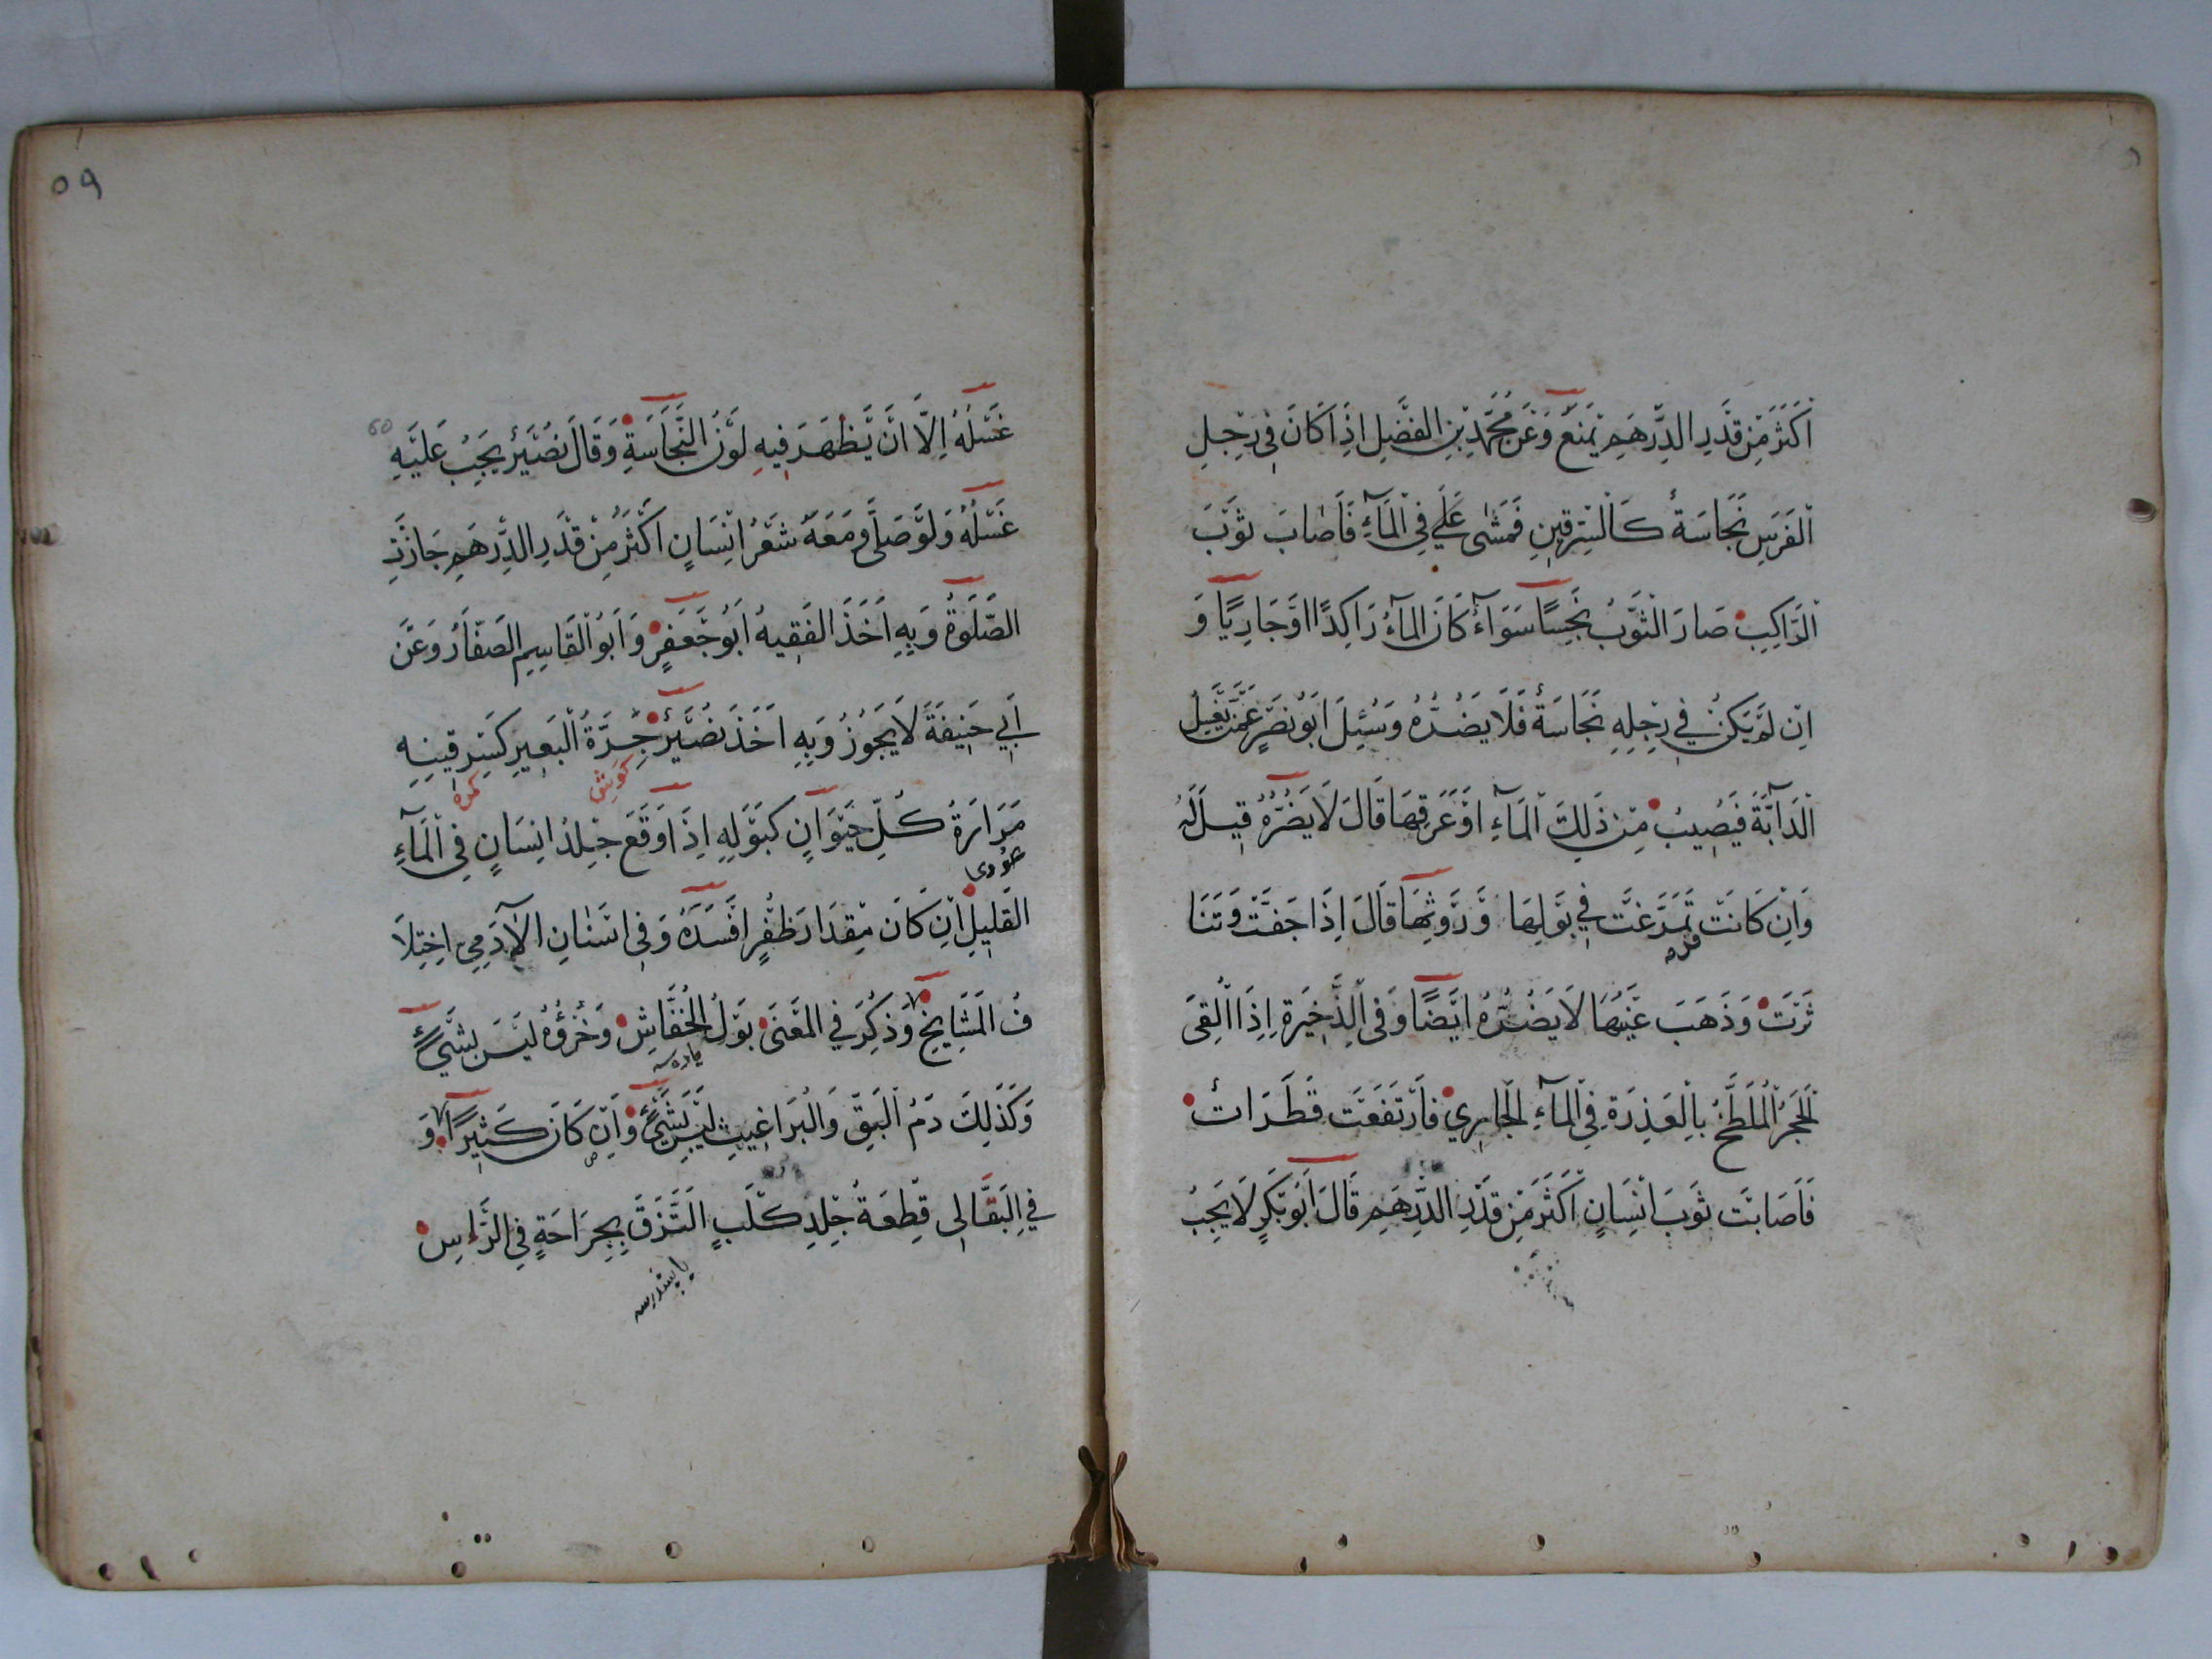 اَكْثَرَ مِنْ قَدْرِ الدِّرْهَمِ يَمْنَعُ وَعَنْ مُحَمَّدِ بْنِ الفَضْلِ اِذَا كَانَ فِي رِجْلِ
الْفَرَسِ نَجَاسَةٌ كَالسِّرْقِينِ فَمَشٰى عَلَي فِي الْمَآءِ فَاَصَابَ ثَوْبَ
الرَّاكِبِ صَارَ الثَّوْبُ نَجِسًا سَوَآءٌ كَانَ المَآءُ رَاكِدًا اَوْ جَارِيًا وَ
اِنْ لَمْ يَكُنْ فِي رِجْلِهِ نَجَاسَةٌ فَلَا يَضُرُّهُ وَسُئِلَ اَبُو نَصْرٍ عَمَّنْ يَغْسِلُ
الدَّآبَّةَ فَيُصِيبُ مِنْ ذَلِكَ الْمَآءِ اَوْ عَرَقِهَا قَالَ لَا يَضُرُّهُ قِيلَ لَهُ
وَاِنْ كَانَتْ تَمَرَّغَتْ فِي بَوْلِهَا وَرَوْثِهَا قَالَ اِذَا جَفَّتْ وَتَنَا
ثَرَتْ وَذَهَبَ عَيْنُهَا لَا يَضُرُّهُ اَيْضًا وَفِي الذَّخِيرَةِ اِذَا اُلْقِىَ
الحَجَرُ الْمُلَطَّخُ بِالْعَذِرَةِ فِي الْمَآءِ الْجَارِي فَارْتَفَعَتْ قَطَرَاتٌ
فَاَصَابَتْ ثَوْبَ اِنْسَانٍ اَكْثَرَ مِنْ قَدْرِ الدِّرْهَمِ قَالَ اَبُو بَكْرٍ لَا يَجِبُ
٥٩
60
غَسْلُهُ اِلَّا اَنْ يَظْهَرَ فِيهِ لَوْنُ النَّجَاسَةِ وَقَالَ نُصَيْرٌ يَجِبُ عَلَيْهِ
غَسْلُهُ وَلَوْ صَلَّى وَمَعَهُ شَعْرُ اِنْسَانٍ اَكْثَرُ مِنْ قَدْرِ الدِّرْهَمِ جَازَتِ
الصَّلَوةُ وَبِهِ اَخَذَ الفَقِيهُ اَبُو جَعْفَرٍ وَاَبُو الْقَاسِمِ الصَفَّارُ وَعَنْ
اَبِي حَنِيفَةَ لَا يَجُوزُ وَبِهِ اَخَذَ نُصَيْرٌ جِرَّةُ الْبَعِيرِ كَسِرْقِينِهِ
كوش
مَرَارَةُ كُلِّ حَيَوَانٍ كَبَوْلِهِ اِذَا وَقَعَ جِلْدُ اِنْسَانٍ فِي الْمَآءِ
القَلِيلِ اِنْ كَانَ مِقْدَارَ ظُفْرٍ اَفْسَدَهُ وَفِي اَسْنَانِ الآدَمِي اِخْتِلَا
فُ المَشَايِخِ وَذُكِرَ فِي المُغْنَى بَوْلُ الْخُفَّاشِ وَخُرْؤُهُ لَيْسَ بِشَيْءٍ
وَكَذَلِكَ دَمُ الْبَقِّ وَالْبَرَاغِيثِ لَيْسَ بِشَيْءٍ وَاِنْ كَانَ كَثِيرًا وَ
فِي البَقَّالِى قِطْعَةُ جِلْدِ كَلْبٍ الْتَزَقَ بِجِرَاحَةٍ فِي الرَّاْسِ